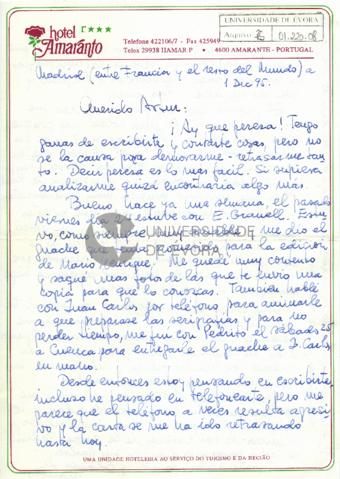 hotel
Amaranto
Telefone 422106/7 - Fax 425949
Telex 29938 HAMAR P • 4600 AMARANTE - PORTUGAL
UNIVERSIDADE DE ÉVORA
Arquivo
Madrid (entre Francia y el resto del Mundo) a
1 Dic 95.
Querido
¡Ay que pereza! Tengo
ganas de escribirte y contarte cosas, pero no
sé la causa para demorarme - retrasarme tan
to. Decir pereza es lo más fácil. Si supiera
analizarme quizá encontraría algo más.
Bueno, hace ya una semana, el pasado
viernes estuve con E. Granell. Estu
vo, como siempre me dio el
guache para la edición
de Mario Me quedé muy contento
y saqué unas fotos de las que te envío una
copia para que lo conozcas. También hablé
con Juan Carlos por teléfono para animarle
a que preparase las serigrafías y para no
perder tiempo, me fui con Pedrito el sábado 25
a Cuenca para entregarle el guache a J. Carlos
en mano.
Desde entonces estoy pensando en escribirte,
incluso he pensado en telefonearte, pero me
parece que el teléfono a veces resulta agresi
vo y la carta se me ha ido retrasando
hasta hoy.
UNIVERSIDADE
DE ÉVORA
UMA UNIDADE HOTELEIRA AO SERVIÇO DO TURISMO E DA REGIÃO